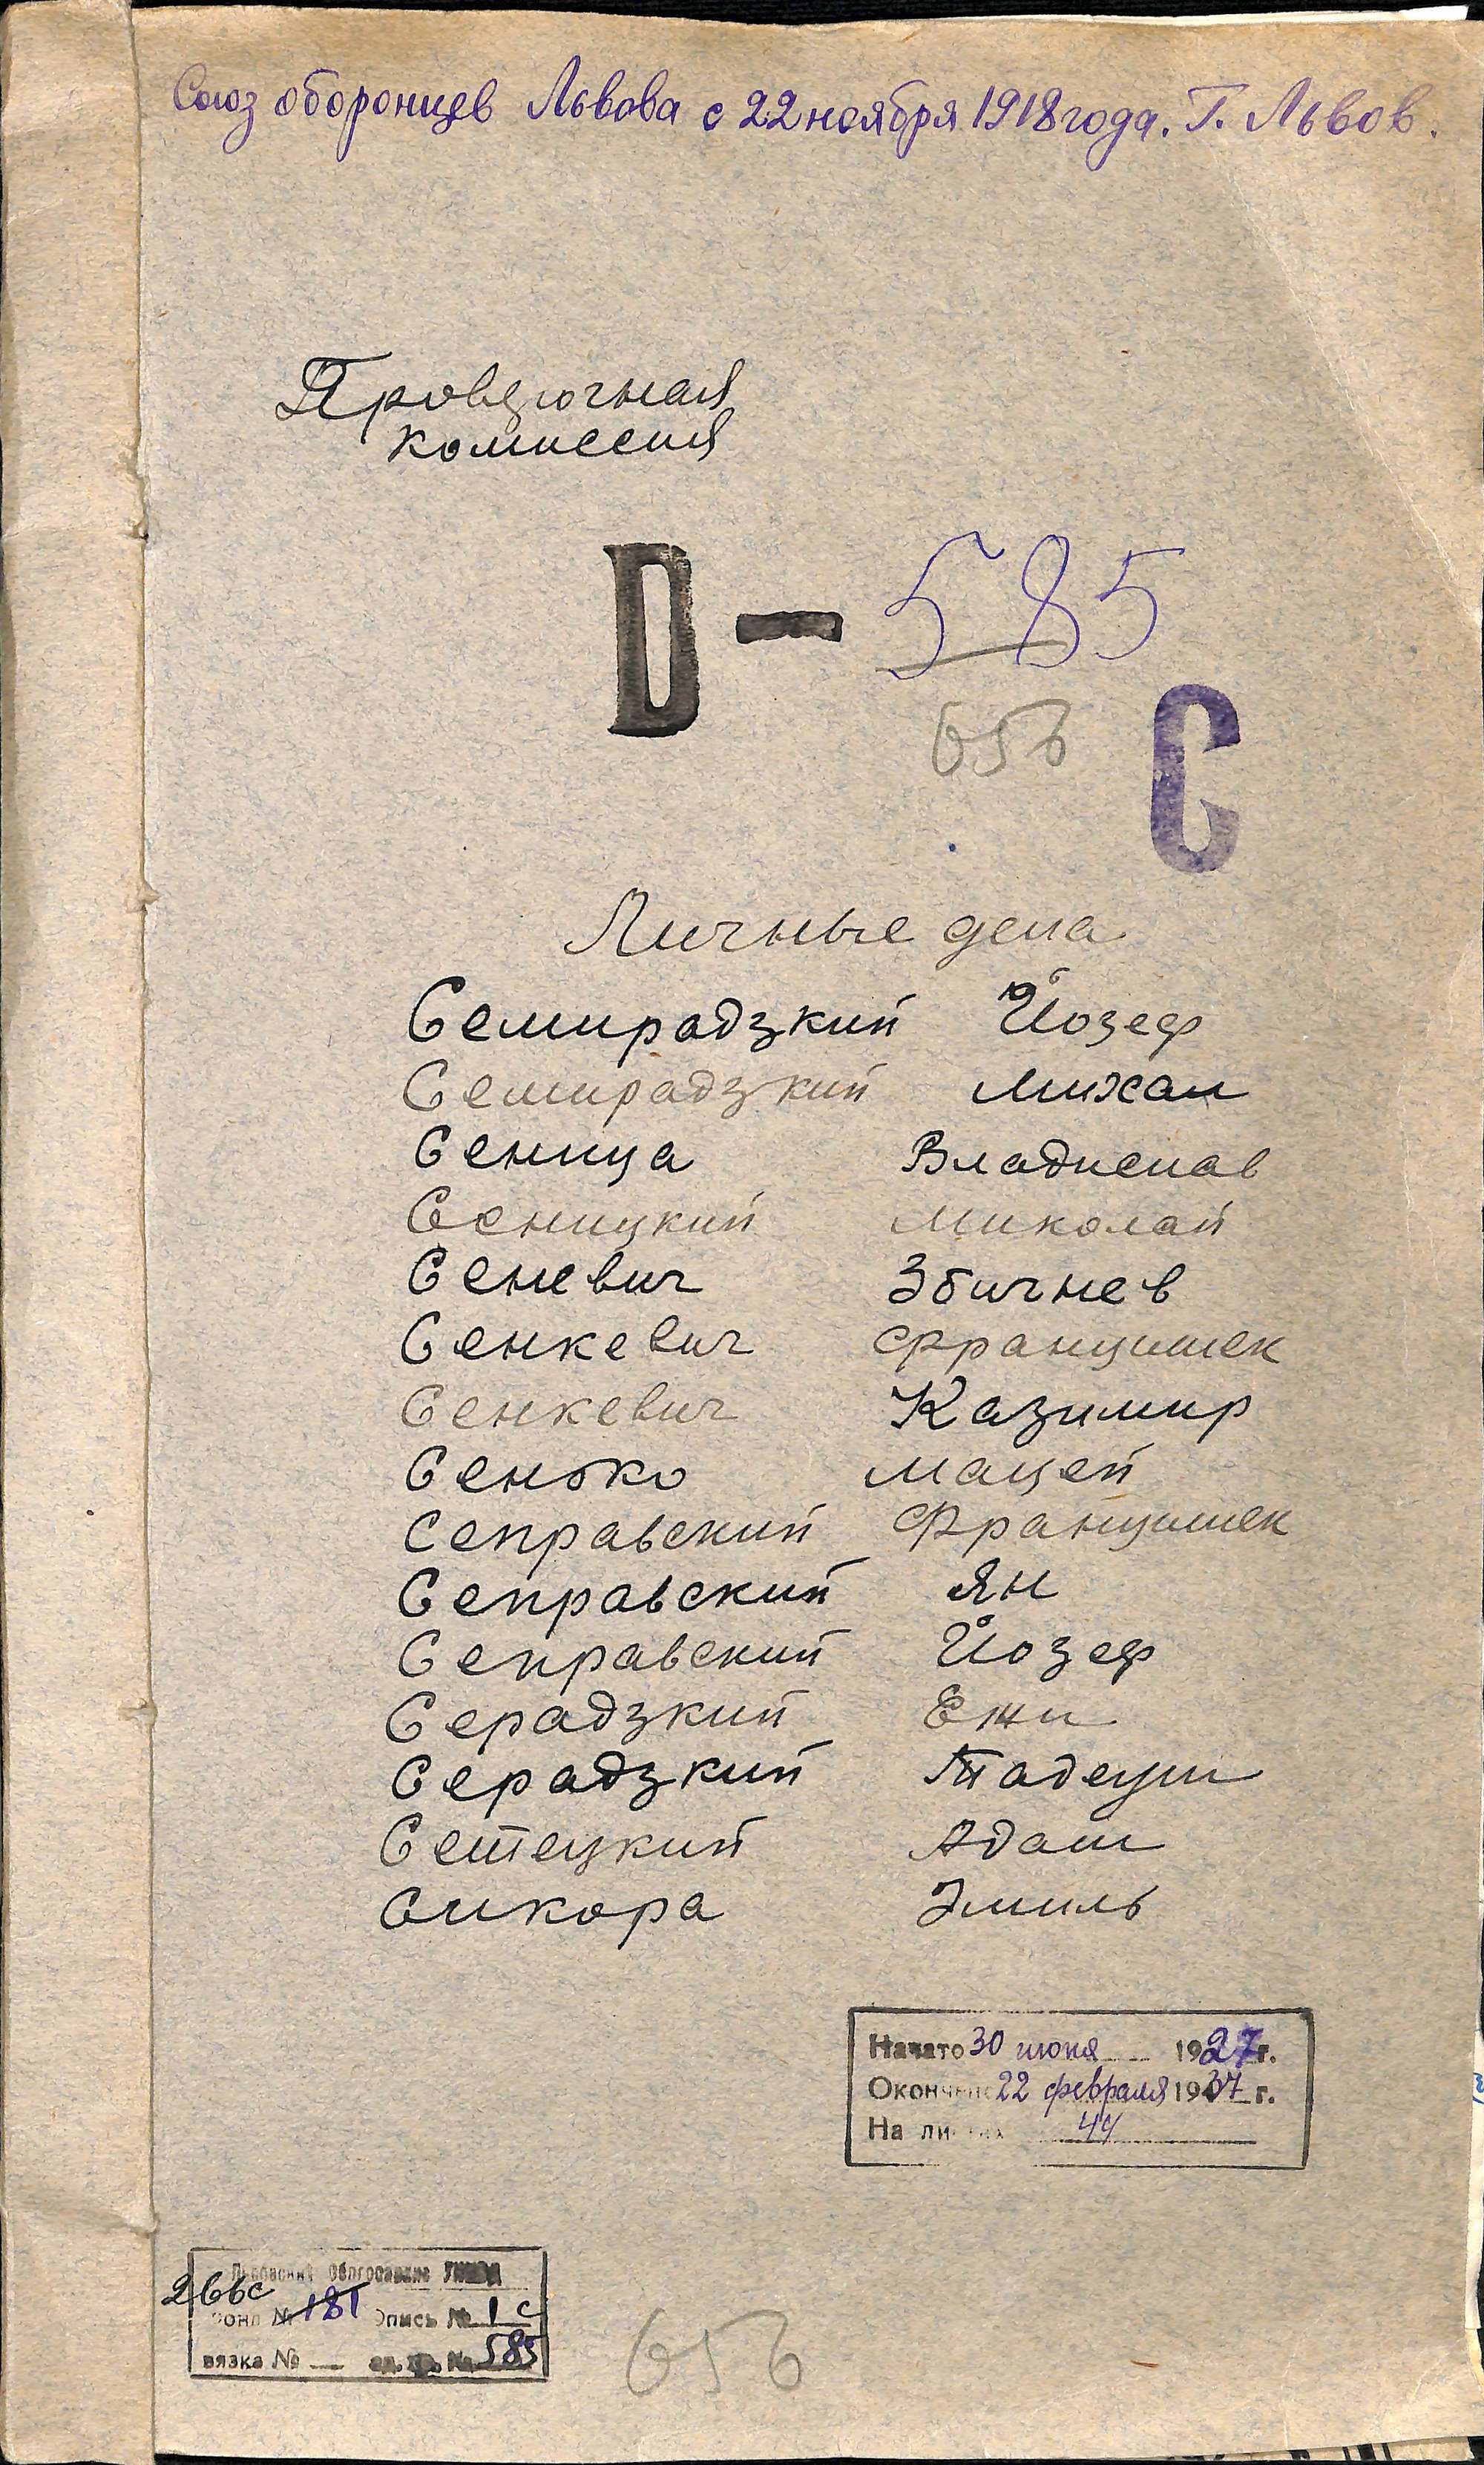 Союз оборонцев Львова с 22 ноября 1918 года. Г. Львов.
Проверочная
комиссия
D — 585
656
С
Личные дела
Семирадзкий Йозеф
Семирадзкий Михал
Сеница Владислав
Сеницкий Миколай
Сеневич Збигнев
Сенкевич Францишек
Сенкевич Казимир
Сенько Мацей
Сеправский Францишек
Сеправский Ян
Сеправский Йозеф
Серадзкий Ежи
Серадзкий Тадеуш
Сетецкий Адам
Сикора Эмиль
Начато 30 июня 1927 г.
Окончено 22 февраля 1937 г.
На листах 44
Львовский Облгосархив
266с
Фонд № 181 Опись № 1 с
вязка № — ед. хр. № 585
656